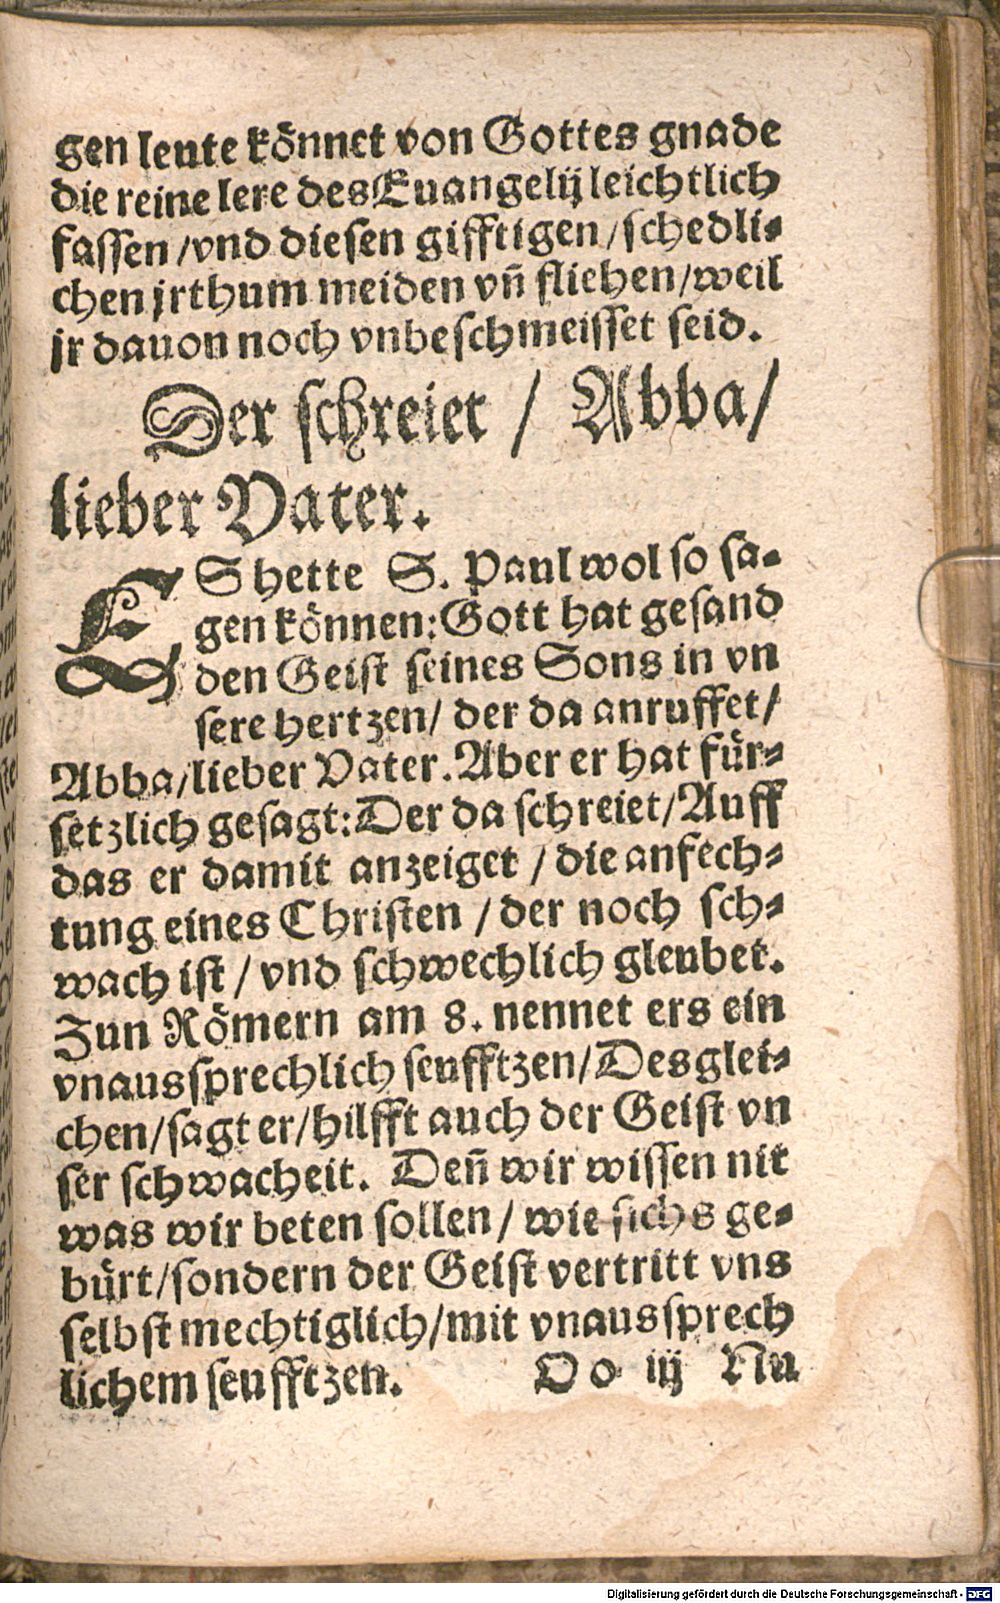 gen leute könnet von Gottes gnade
die reine lere des Euangelij leichtlich
fassen /vnd diesen gifftigen/schedli⸗
chen jrthum meiden vñ fliehen/weil
jr dauon noch vnbeschmeisset seid.
Der schreiet / Abba/
lieber Vater.
ES hette S. Paul wol so sa⸗
gen können: Gott hat gesand
den Geist seines Sons in vn
sere hertzen/ der da anruffet/
Abba/lieber Vater. Aber er hat für⸗
setzlich gesagt: Der da schreiet/Auff
das er damit anzeiget / die anfech⸗
tung eines Christen /der noch sch⸗
wach ist / vnd schwechlich gleubet.
Zun Römern am 8. nennet ers ein
vnaussprechlich seufftzen/Desglei⸗
chen/sagt er/hilfft auch der Geist vn
ser schwacheit. Deñ wir wissen nit
was wir beten sollen / wie sichs ge⸗
bürt/sondern der Geist vertritt vns
selbst mechtiglich/mit vnaussprech
lichem seufftzen. Oo iij Nu
Digitalisierung gefördert durch die Deutsche Forschungsgemeinschaft - DFG